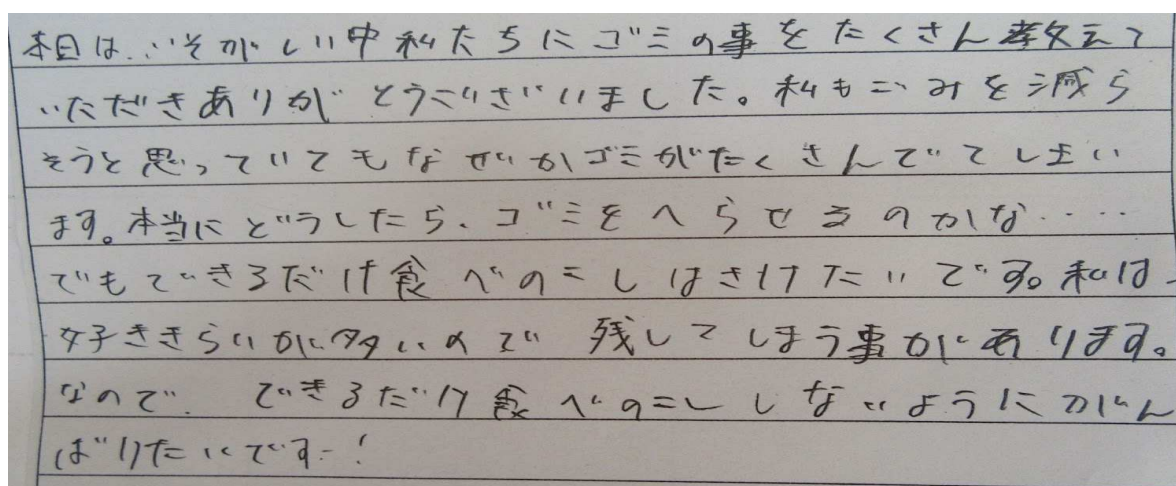 本日は、いそがしい中私たちにゴミの事をたくさん教えて
いただきありがとうございました。私もごみを減ら
そうと思っていてもなぜかゴミがたくさんでてしまい
ます。本当にどうしたら、ゴミをへらせるのかな‥‥
でもできるだけ食べのこしはさけたいです。私は
好ききらいが多いので残してしまう事があります。
なので、できるだけ食べのこししないようにがん
ばりたいです!